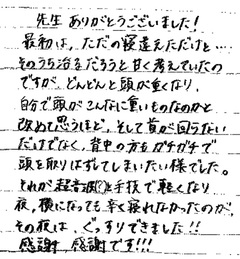 先生 ありがとうございました!
最初は、ただの寝違えただけと…
そのうち治るだろうと甘く考えていたの
ですが、どんどんと頭が重くなり、
自分で頭がこんなに重いものなのかと
改めて思うほど、そして首が回らない
だけでなく、背中の方もガチガチで
頭を取りはずしてしまいたい様でした。
それが超音波(?)と手技で軽くなり
夜、横になっても辛く寝れなかったのが、
その夜は、ぐっすりできました!!
感謝、感謝です!!!